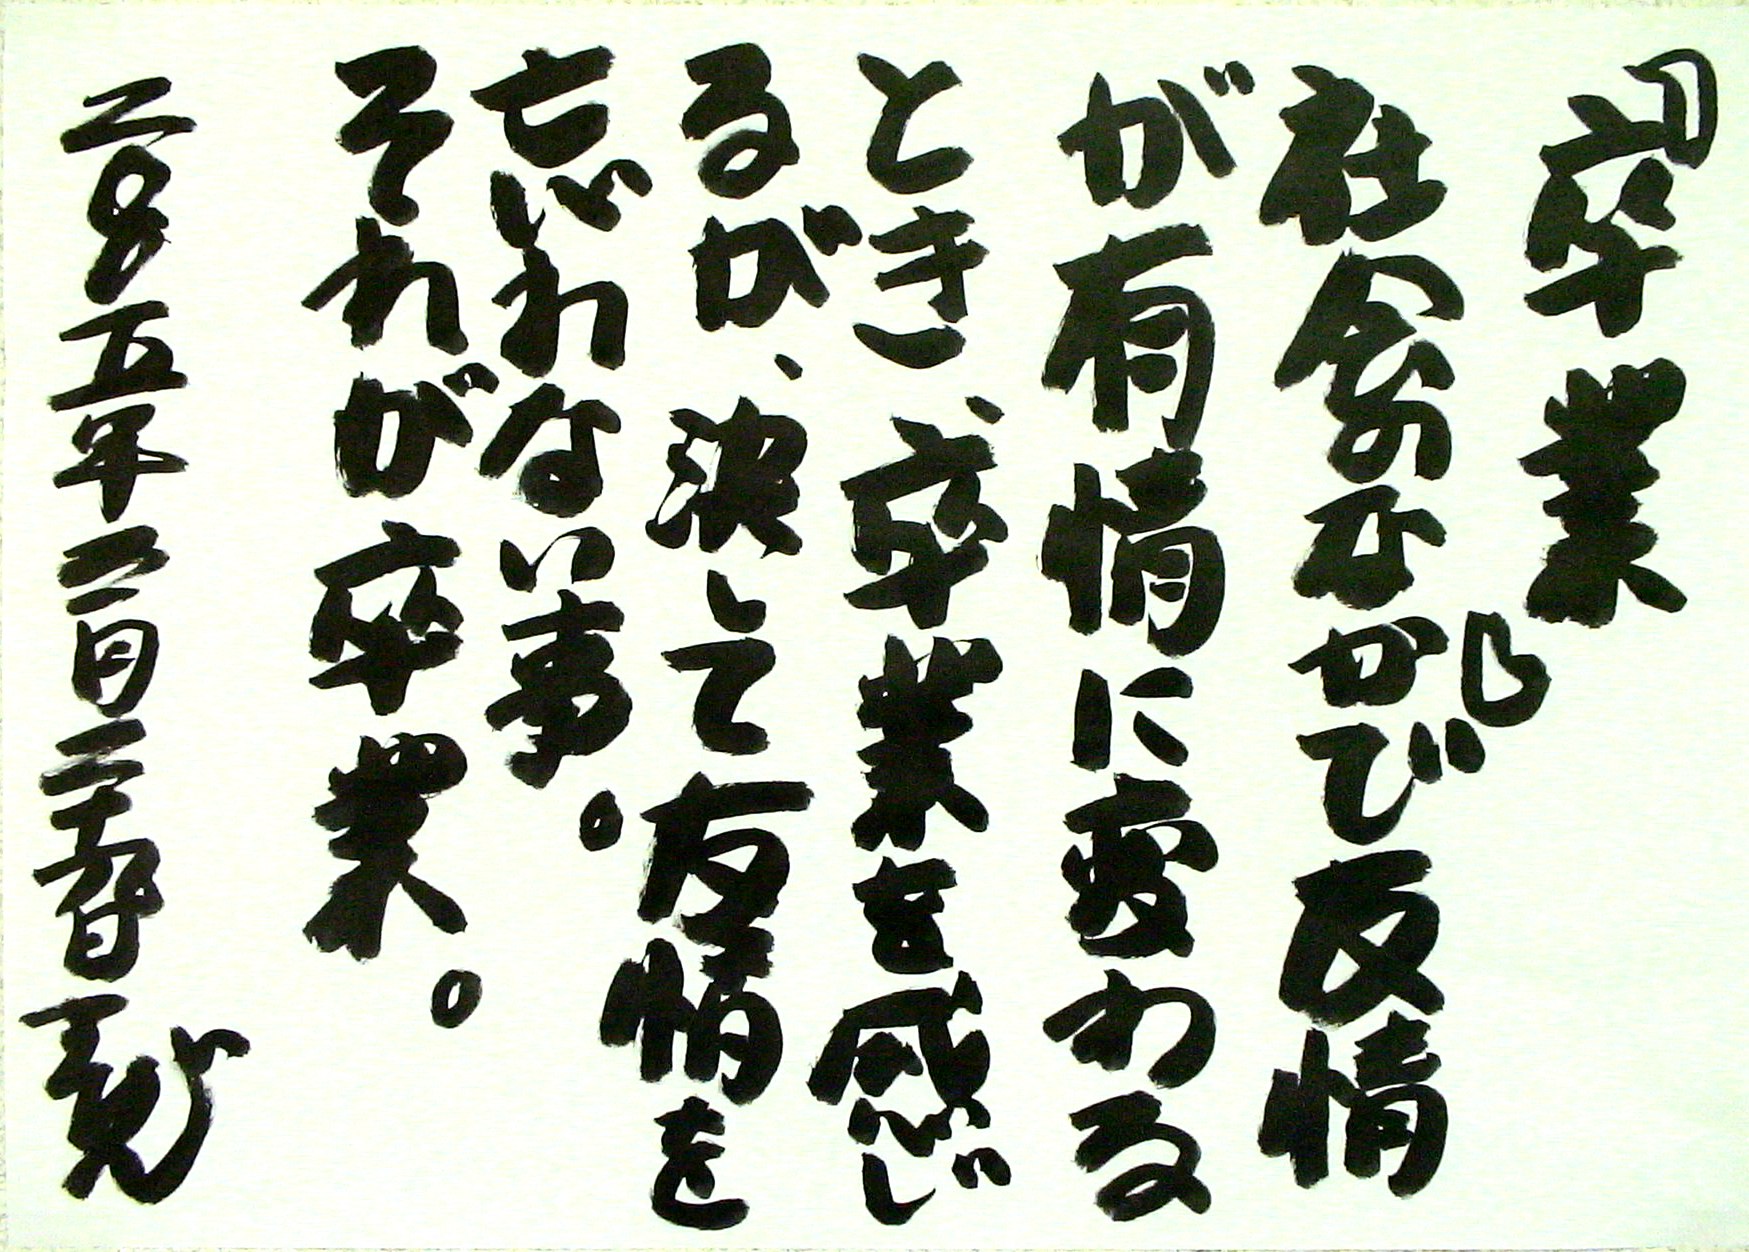 『卒業』
社会のなかで友情
が有情に変わる
とき、卒業を感じ
るが、決して友情を
忘れない事。
それが卒業。
二〇〇五年